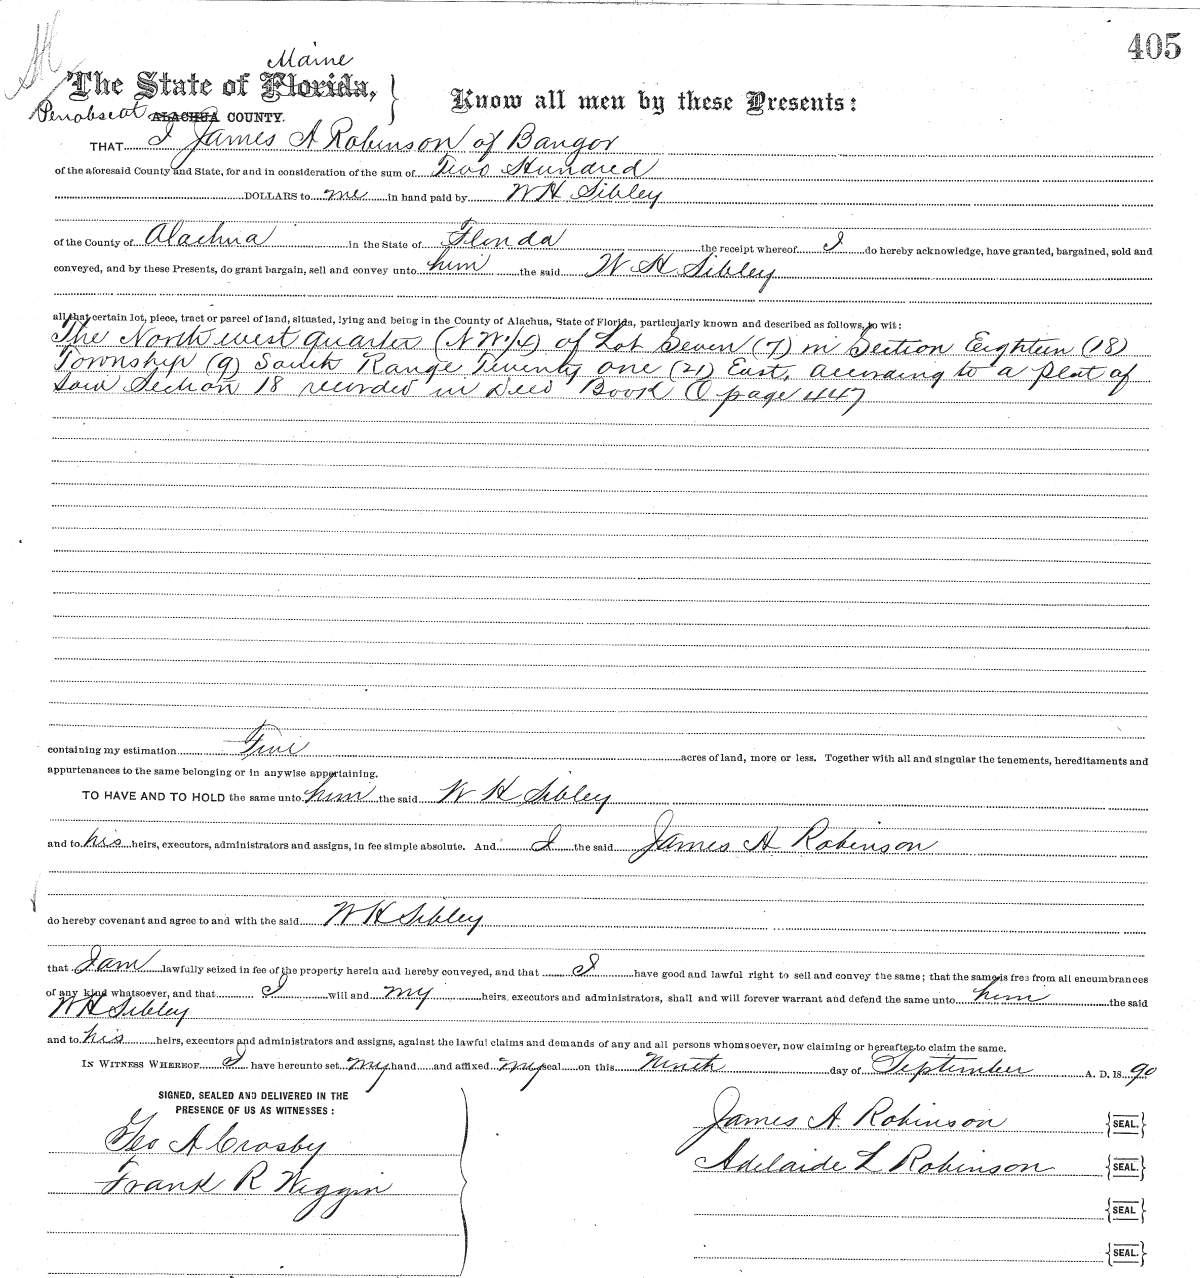 405
Maine
The State of Florida, Know all men by these Presents:
Penobscot ALACHUA COUNTY.
THAT I James A Robinson of Bangor
of the aforesaid County and State, for and in consideration of the sum of Two Hundred
DOLLARS to me in hand paid by W H Sibley
of the County of Alachua in the State of Florida the receipt whereof I do hereby acknowledge, have granted, bargained, sold and
conveyed, and by these Presents, do grant bargain, sell and convey unto him the said W H Sibley
all that certain lot, piece, tract or parcel of land, situated, lying and being in the County of Alachua, State of Florida, particularly known and described as follows, to wit:
The North west quarter (NW 1/4) of Lot Seven (7) in Section Eighteen (18)
Township (9) South Range Twenty one (21) East, according to a plat of
said Section 18 recorded in Deed Book O page 447
containing my estimation Five acres of land, more or less. Together with all and singular the tenements, hereditaments and
appurtenances to the same belonging or in anywise appertaining.
TO HAVE AND TO HOLD the same unto him the said W H Sibley
and to his heirs, executors, administrators and assigns, in fee simple absolute. And I the said James A Robinson
do hereby covenant and agree to and with the said W H Sibley
that I am lawfully seized in fee of the property herein and hereby conveyed, and that I have good and lawful right to sell and convey the same; that the same is free from all encumbrances
of any kind whatsoever, and that I will and my heirs, executors and administrators, shall and will forever warrant and defend the same unto him the said
W H Sibley
and to his heirs, executors and administrators and assigns, against the lawful claims and demands of any and all persons whomsoever, now claiming or hereafter to claim the same.
IN WITNESS WHEREOF I have hereunto set my hand and affixed my seal on this Ninth day of September A. D. 18 90
SIGNED, SEALED AND DELIVERED IN THE
PRESENCE OF US AS WITNESSES:
Geo A Crosby
Frank R Wiggin
James A. Robinson {SEAL.}
Adelaide L Robinson {SEAL.}
{SEAL}
{SEAL.}